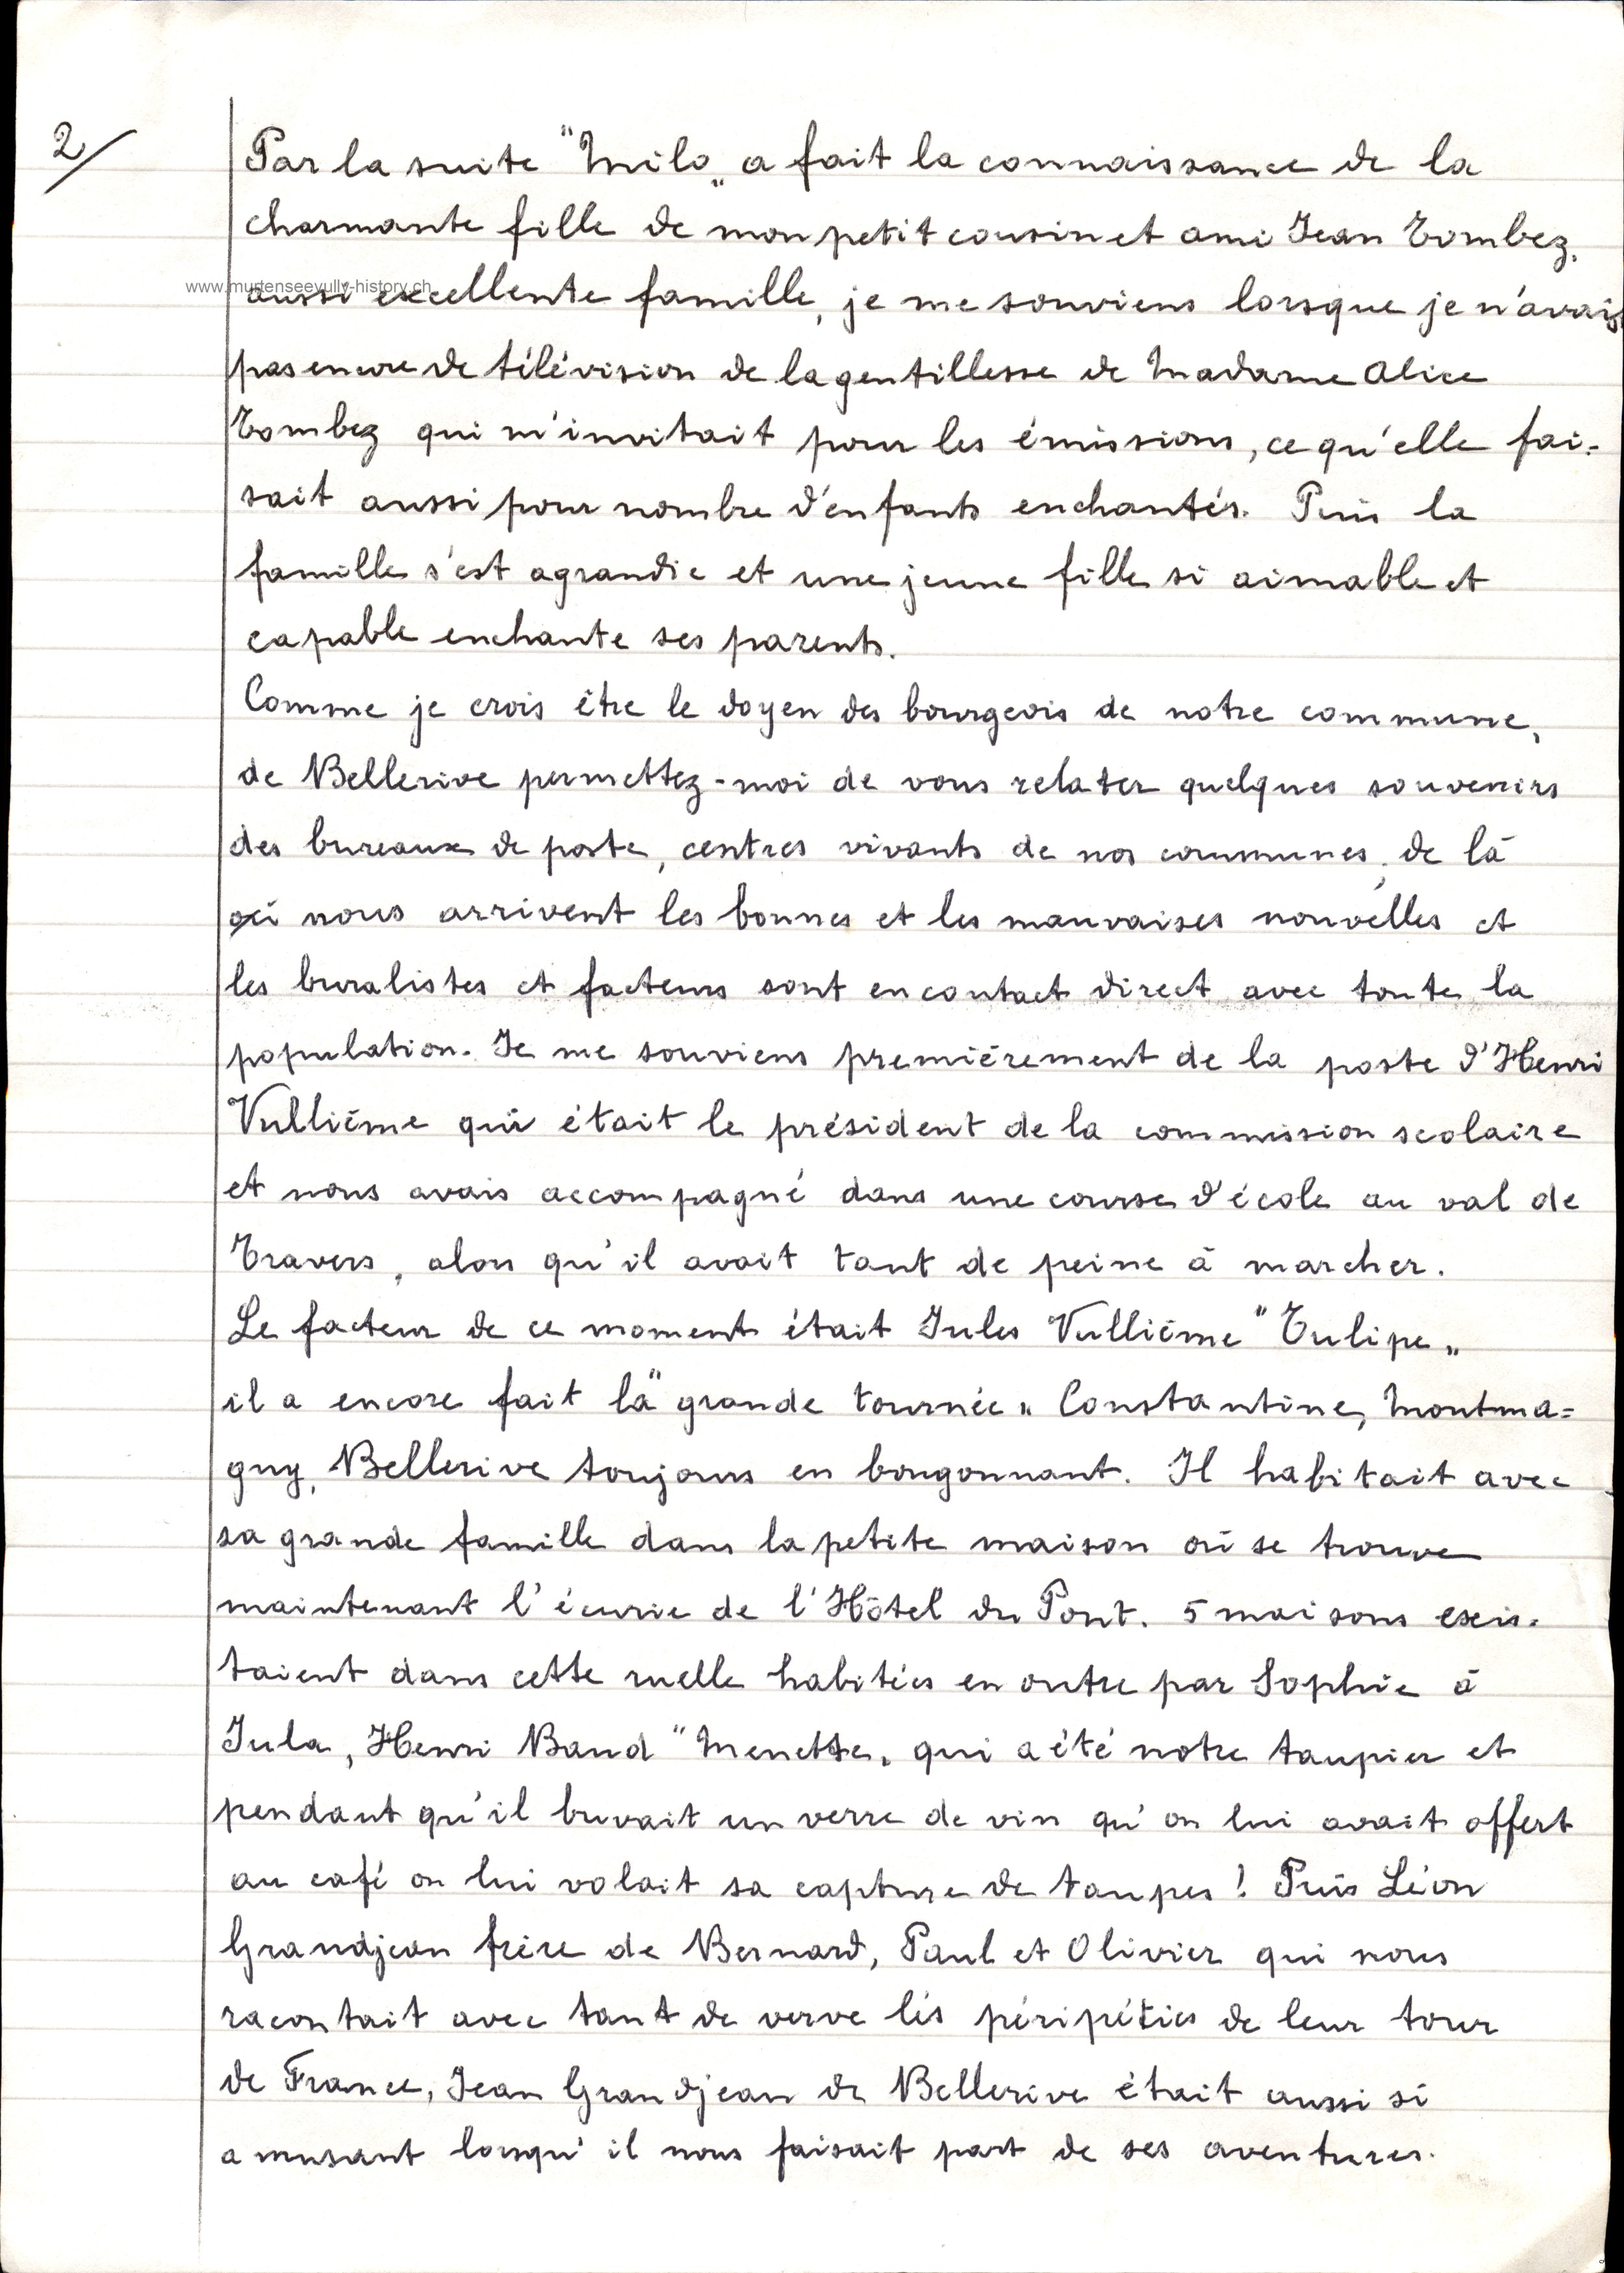 2/
Par la suite "Milo" a fait la connaissance de la
charmante fille de mon petit cousin et ami Jean Tombez,
www.murtenseevully-history.ch
aussi excellente famille, je me souviens lorsque je n'avais
pas encore de télévision de la gentillesse de Madame Alice
Tombez qui m'invitait pour les émissions, ce qu'elle fai=
sait aussi pour nombre d'enfants enchantés. Puis la
famille s'est agrandie et une jeune fille si aimable et
capable enchante ses parents.
Comme je crois être le doyen des bourgeois de notre commune,
de Bellerive permettez-moi de vous relater quelques souvenirs
des bureaux de poste, centres vivants de nos communes, de là
où nous arrivent les bonnes et les mauvaises nouvelles et
les buralistes et facteurs sont en contact direct avec toute la
population. Je me souviens premièrement de la poste d'Henri
Vullième qui était le président de la commission scolaire
et nous avais accompagné dans une course d'école au val de
Travers, alors qu'il avait tant de peine à marcher.
Le facteur de ce moment était Jules Vullième "Tulipe"
il a encore fait la "grande tournée" Constantine, Montma=
gny, Bellerive toujours en bougonnant. Il habitait avec
sa grande famille dans la petite maison où se trouve
maintenant l'écurie de l'Hôtel du Pont. 5 maisons exis-
taient dans cette ruelle habitées en outre par Sophie à
Jula, Henri Baud "Menette" qui a été notre taupier et
pendant qu'il buvait un verre de vin qu'on lui avait offert
au café on lui volait sa capture de taupes! Puis Léon
Grandjean frère de Bernard, Paul et Olivier qui nous
racontait avec tant de verve les péripéties de leur tour
de France, Jean Grandjean de Bellerive était aussi si
amusant lorsqu'il nous faisait part de ses aventures.